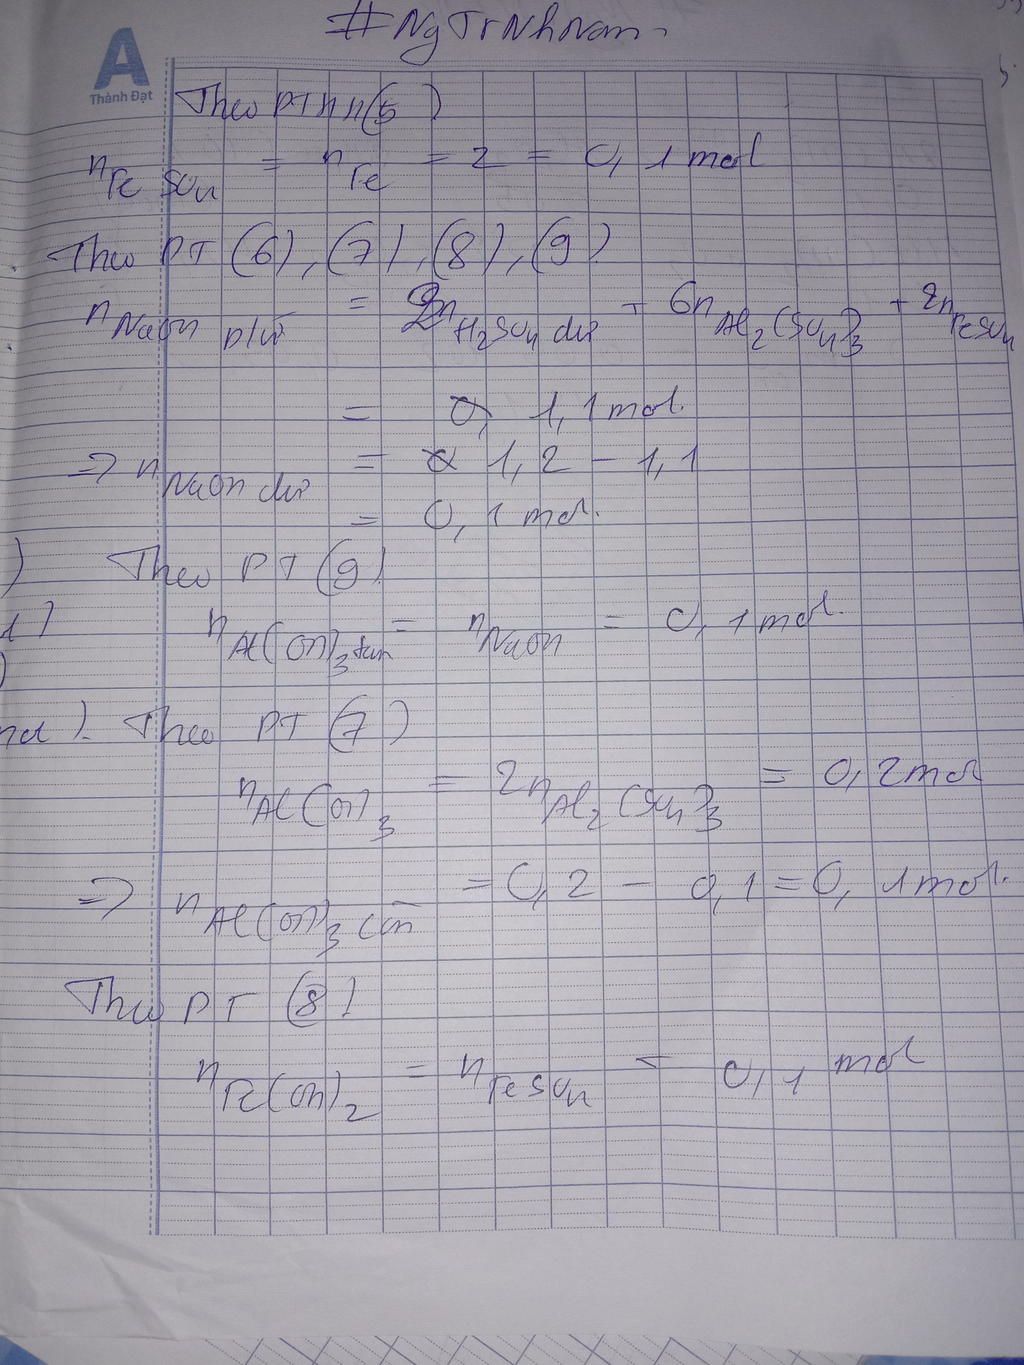 #NgTrNhNam
A
Thành Đạt
Theo PTHH (5)
nFeSO4 = nFe = 2 = 0,1 mol
Theo PT (6), (7), (8), (9)
nNaOH p/ứ = 2nH2SO4 dư + 6nAl2(SO4)3 + 2nFeSO4
= 1,1 mol.
=> nNaOH dư = 1,2 - 1,1
= 0,1 mol.
Theo PT (9)
nAl(OH)3 tan = nNaOH = 0,1 mol.
Theo PT (7)
nAl(OH)3 = 2nAl2(SO4)3 = 0,2 mol
=> nAl(OH)3 còn = 0,2 - 0,1 = 0,1 mol.
Theo PT (8)
nFe(OH)2 = nFeSO4 = 0,1 mol